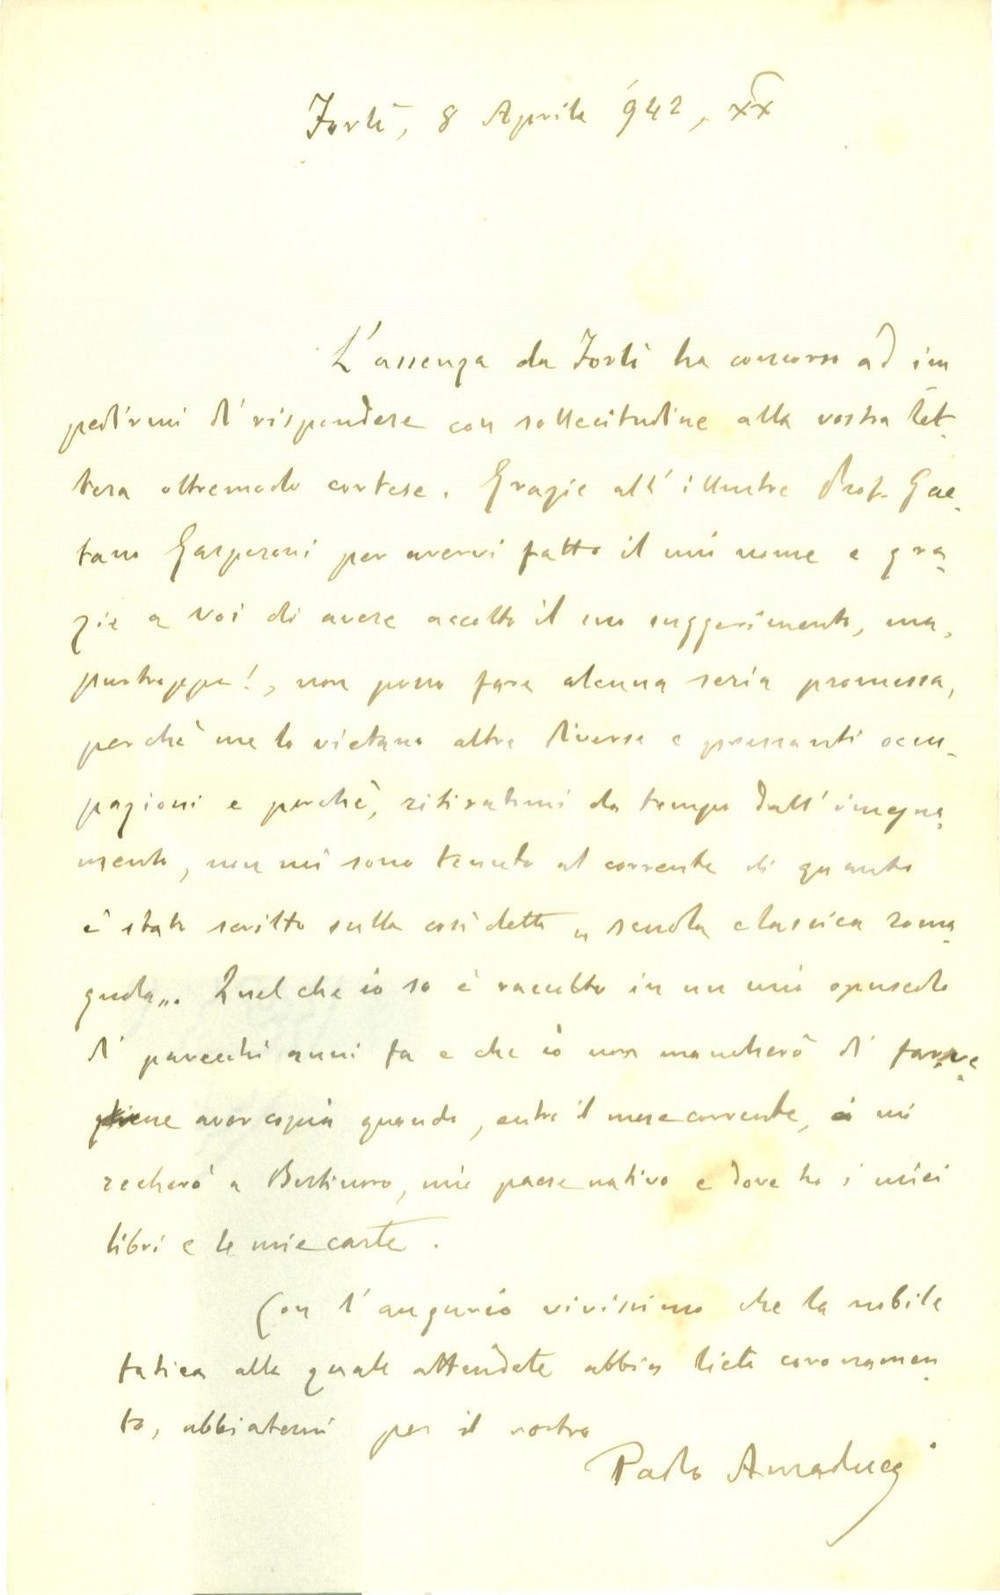 Forlì, 8 Aprile 942, XX
L'assenza da Forlì ha concorso ad im
pedirmi di rispondere con sollecitudine alla vostra let-
tera oltremodo cortese. Grazie all'illustre Prof. Gae-
tano Gasperoni per avervi fatto il mio nome e gra-
zie a voi di avere accolto il suo suggerimento, ma,
purtroppo!, non posso fare alcuna seria promessa,
perchè me lo vietano altre diverse e pressanti occu-
pazioni e perchè, ritiratomi da tempo dall'insegna-
mento, non mi sono tenuto al corrente di quanto
è stato scritto sulla così detta „ scuola classica roma-
gnola„. Quel che io so è raccolto in un mio opuscolo
di parecchi anni fa e che io non mancherò di farve-
ne aver copia quando, entro il mese corrente, mi
recherò a Bertinoro, mio paese nativo e dove ho i miei
libri e le mie carte.
Con l'augurio vivissimo che la nobile
fatica alla quale attendete abbia lieto coronamen-
to, abbiatemi per il vostro
Paolo Amaducci